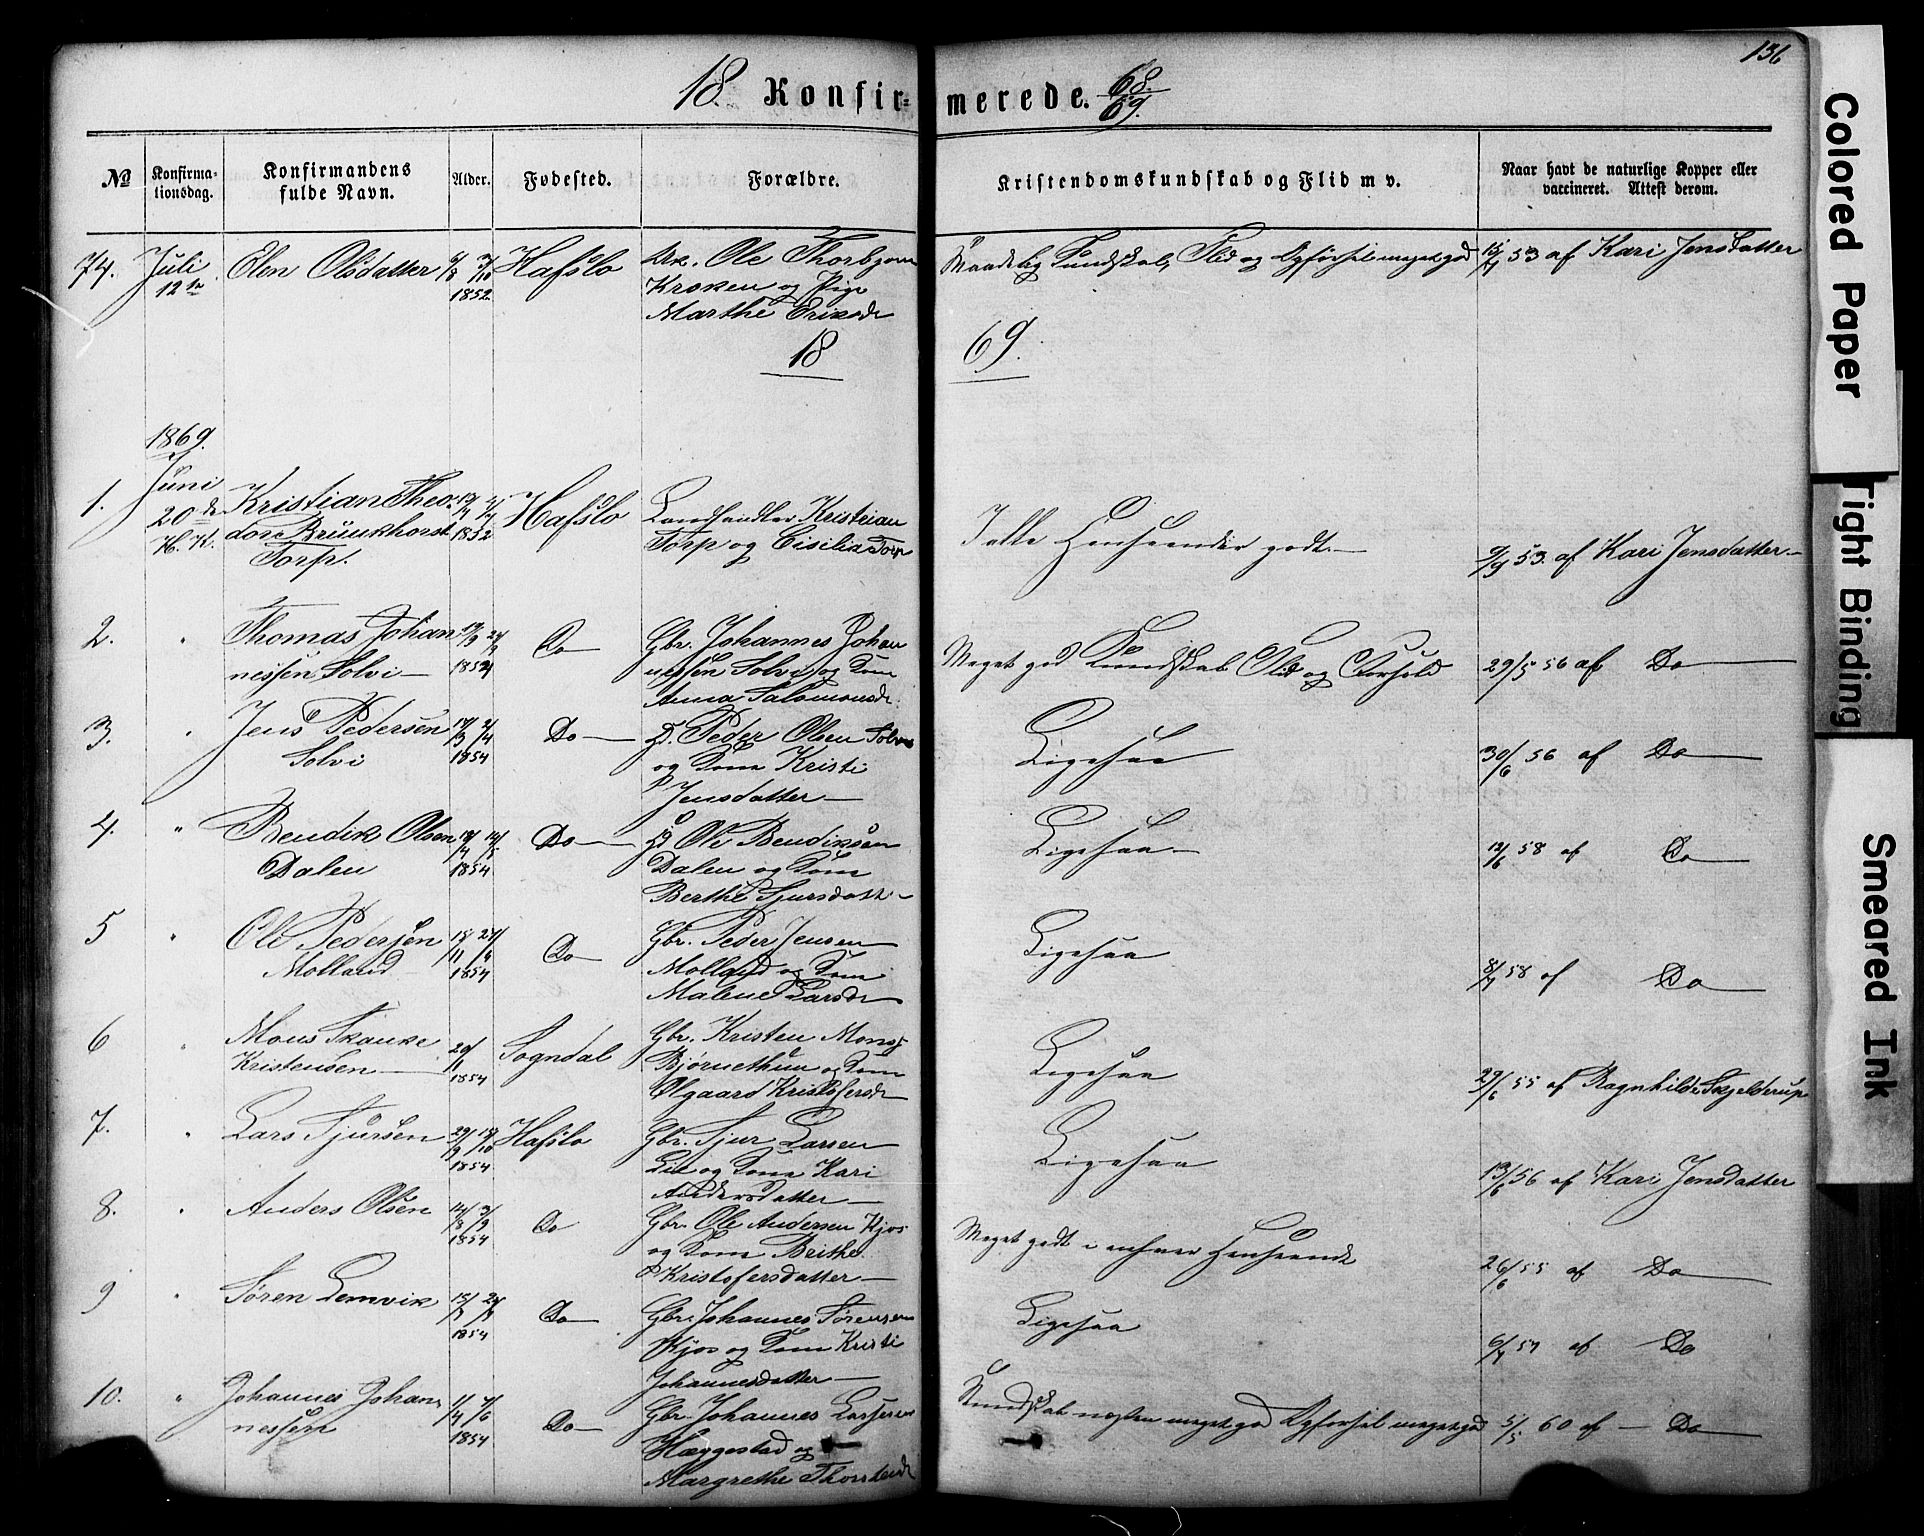 136
18 Konfirmerede. 68. 69.
№ Konfirmationsdag. Konfirmandens fulde Navn. Alder. Fødested. Forældre. Kristendomskundskab og Flid m v. Naar havt de naturlige Kopper eller vaccineret. Attest derom.
74. Juli Elen Olsdatter Hafslo Ole Thorbjørns Maadelig Kundskab, Flid og Opførsel meget god 53 af Kari Jensdatter
12te 1852 Kroken og Pige
Marthe Eriksd
18 69.
1869.
1. Juni Kristian Theo- Hafslo Landhandler Kristian I alle Henseender godt
20de dor Brunkhorst 1852 Torp og Cisilia Torp 9/9 53. af Kari Jensdatter
K. K. Torp.
2. " Thomas Johan Do Gbr. Johannes Johan Meget god Kundskab Flid og Forhold 29/5 56 af Do
nessen Solvi 1854 nessen Solvi og Kone
Anna Salomonsd.
3. " Jens Pedersen Do Peder Olsen Solvi Ligesaa 30/6 56 af Do
Solvi 1854 og Kone Kristi
Jensdatter
4. " Bendik Olsen Do Ole Bendiksen Ligesaa 58 af Do
Dalen 1854 Dalen og Kone
Berthe Sjursdatt
5 " Ole Pedersen Do Gbr. Peder Jensen Ligesaa 8/7 58 af Do
Molland 1854 Molland og Kone
Malene Larsd
6 " Mons Skanke Sogndal Gbr. Kristen Mons- Ligesaa 29/6 55 af Ragnhilde Skjelderup
Kristensen 1854 Bjørnethun og Kone
Olgaard Kristofersd
7. " Lars Sjursen Hafslo Gbr. Sjur Larsen Ligesaa 13/6 56 af Kari Jensdatter
1854 Lie og Kone Kari
Andersdatter
8. " Anders Olsen Do Gbr. Ole Andersen Kjos Meget godt i enhver Henseende 26/6 55 af Do
1854 og Kone Brithe
Kristofersdatter
9 " Søren Lemvik Do Gbr. Johannes Sørensen Ligesaa 6/7 57 af Do
1854 Kjos og Kone Kristi
Johannesdatter
10. " Johannes Johan- Do Gbr. Johannes Lassesen Kundskab næsten meget god Opførsel meget god 5/5 60 af Do
nessen 1854 Hæggestad og
Margrethe Thorsteind
Colored Paper
Tight Binding
Smeared Ink